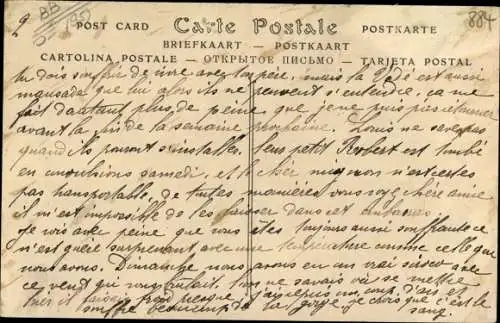 2
BB
5-195
884
POST CARD Carte Postale POSTKARTE
BRIEFKAART — POSTKAART
CARTOLINA POSTALE — ОТКРЫТОЕ ПИСЬМО — TARJETA POSTAL
tu dois souffrir de vivre avec ton père, mais la Dédé est aussi
que lui alors ils ne peuvent s'entendre, ça me
fait d'autant plus de peine que je ne puis pas
avant la fin de la semaine prochaine. Louis ne sait pas
quand ils pourront s'installer. leur petit Robert est tombé
en convulsions samedi, et le cher mignon n'est certes
pas transportable, de toutes manières vous voyez chère amie
il m'est impossible de les laisser dans cet embarras.
Je vois avec peine que vous êtes toujours aussi souffrante ce
n'est guère surprenant avec une température comme celle que
nous avons. Dimanche nous avons eu un vrai
ce vent qui soufflait. on ne savait où se mettre
hier il faisait froid presque, j'ai
souffre beaucoup de la gorge je crois que c'est le
sang.